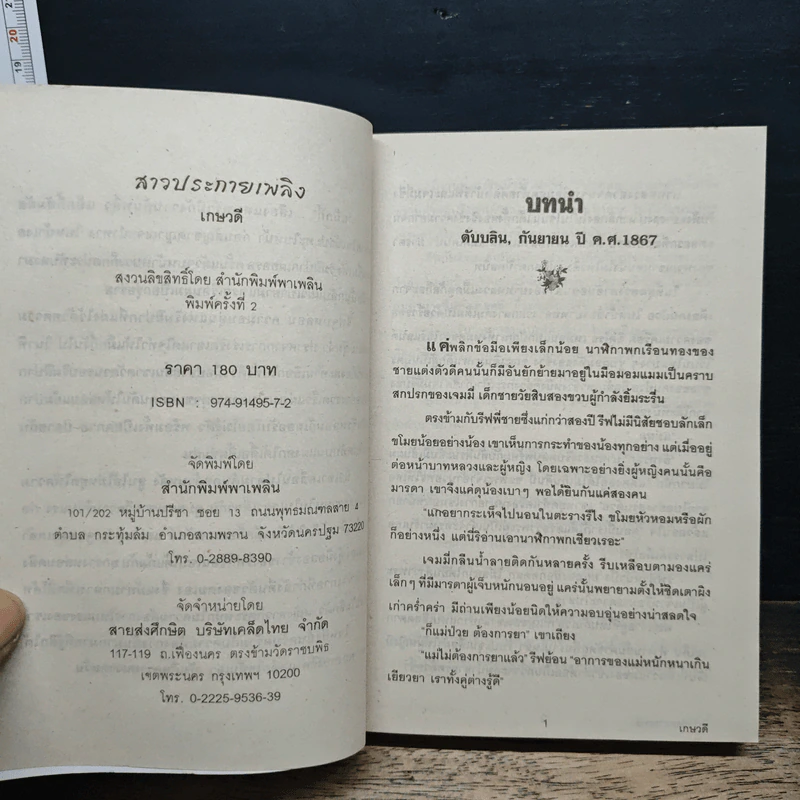 19 20 21
สาวประกายเพลิง
เกษวดี
สงวนลิขสิทธิ์โดย สำนักพิมพ์พาเพลิน
พิมพ์ครั้งที่ 2
ราคา 180 บาท
ISBN : 974-91495-7-2
จัดพิมพ์โดย
สำนักพิมพ์พาเพลิน
101/202 หมู่บ้านปรีชา ซอย 13 ถนนพุทธมณฑลสาย 4
ตำบล กระทุ่มล้ม อำเภอสามพราน จังหวัดนครปฐม 73220
โทร. 0-2889-8390
จัดจำหน่ายโดย
สายส่งศึกษิต บริษัทเคล็ดไทย จำกัด
117-119 ถ.เฟื่องนคร ตรงข้ามวัดราชบพิธ
เขตพระนคร กรุงเทพฯ 10200
โทร. 0-2225-9536-39
บทนำ
ดับบลิน, กันยายน ปี ค.ศ.1867
แค่พลิกข้อมือเพียงเล็กน้อย นาฬิกาพกเรือนทองของ
ชายแต่งตัวดีคนนั้นก็มีอันยักย้ายมาอยู่ในมือมอมแมมเป็นคราบ
สกปรกของเจมมี่ เด็กชายวัยสิบสองขวบผู้กำลังยิ้มระรื่น
ตรงข้ามกับรีฟพี่ชายซึ่งแก่กว่าสองปี รีฟไม่มีนิสัยชอบลักเล็ก
ขโมยน้อยอย่างน้อง เขาเห็นการกระทำของน้องทุกอย่าง แต่เมื่ออยู่
ต่อหน้าบาทหลวงและผู้หญิง โดยเฉพาะอย่างยิ่งผู้หญิงคนนั้นคือ
มารดา เขาจึงแค่ดุน้องเบาๆ พอได้ยินกันแค่สองคน
"แกอยากระเห็จไปนอนในตะรางรึไง ขโมยหัวหอมหรือผัก
ก็อย่างหนึ่ง แต่นี่ริอ่านเอานาฬิกาพกเชียวเรอะ"
เจมมี่กลืนน้ำลายติดกันหลายครั้ง รีบเหลือบตามองแคร่
เล็กๆ ที่มีมารดาผู้เจ็บหนักนอนอยู่ แคร่นั้นพยายามตั้งให้ชิดเตาผิง
เก่าคร่ำคร่า มีถ่านเพียงน้อยนิดให้ความอบอุ่นอย่างน่าสลดใจ
"ก็แม่ป่วย ต้องการยา" เขาเถียง
"แม่ไม่ต้องการยาแล้ว" รีฟย้อน "อาการของแม่หนักหนาเกิน
เยียวยา เราทั้งคู่ต่างรู้ดี"
1
เกษวดี